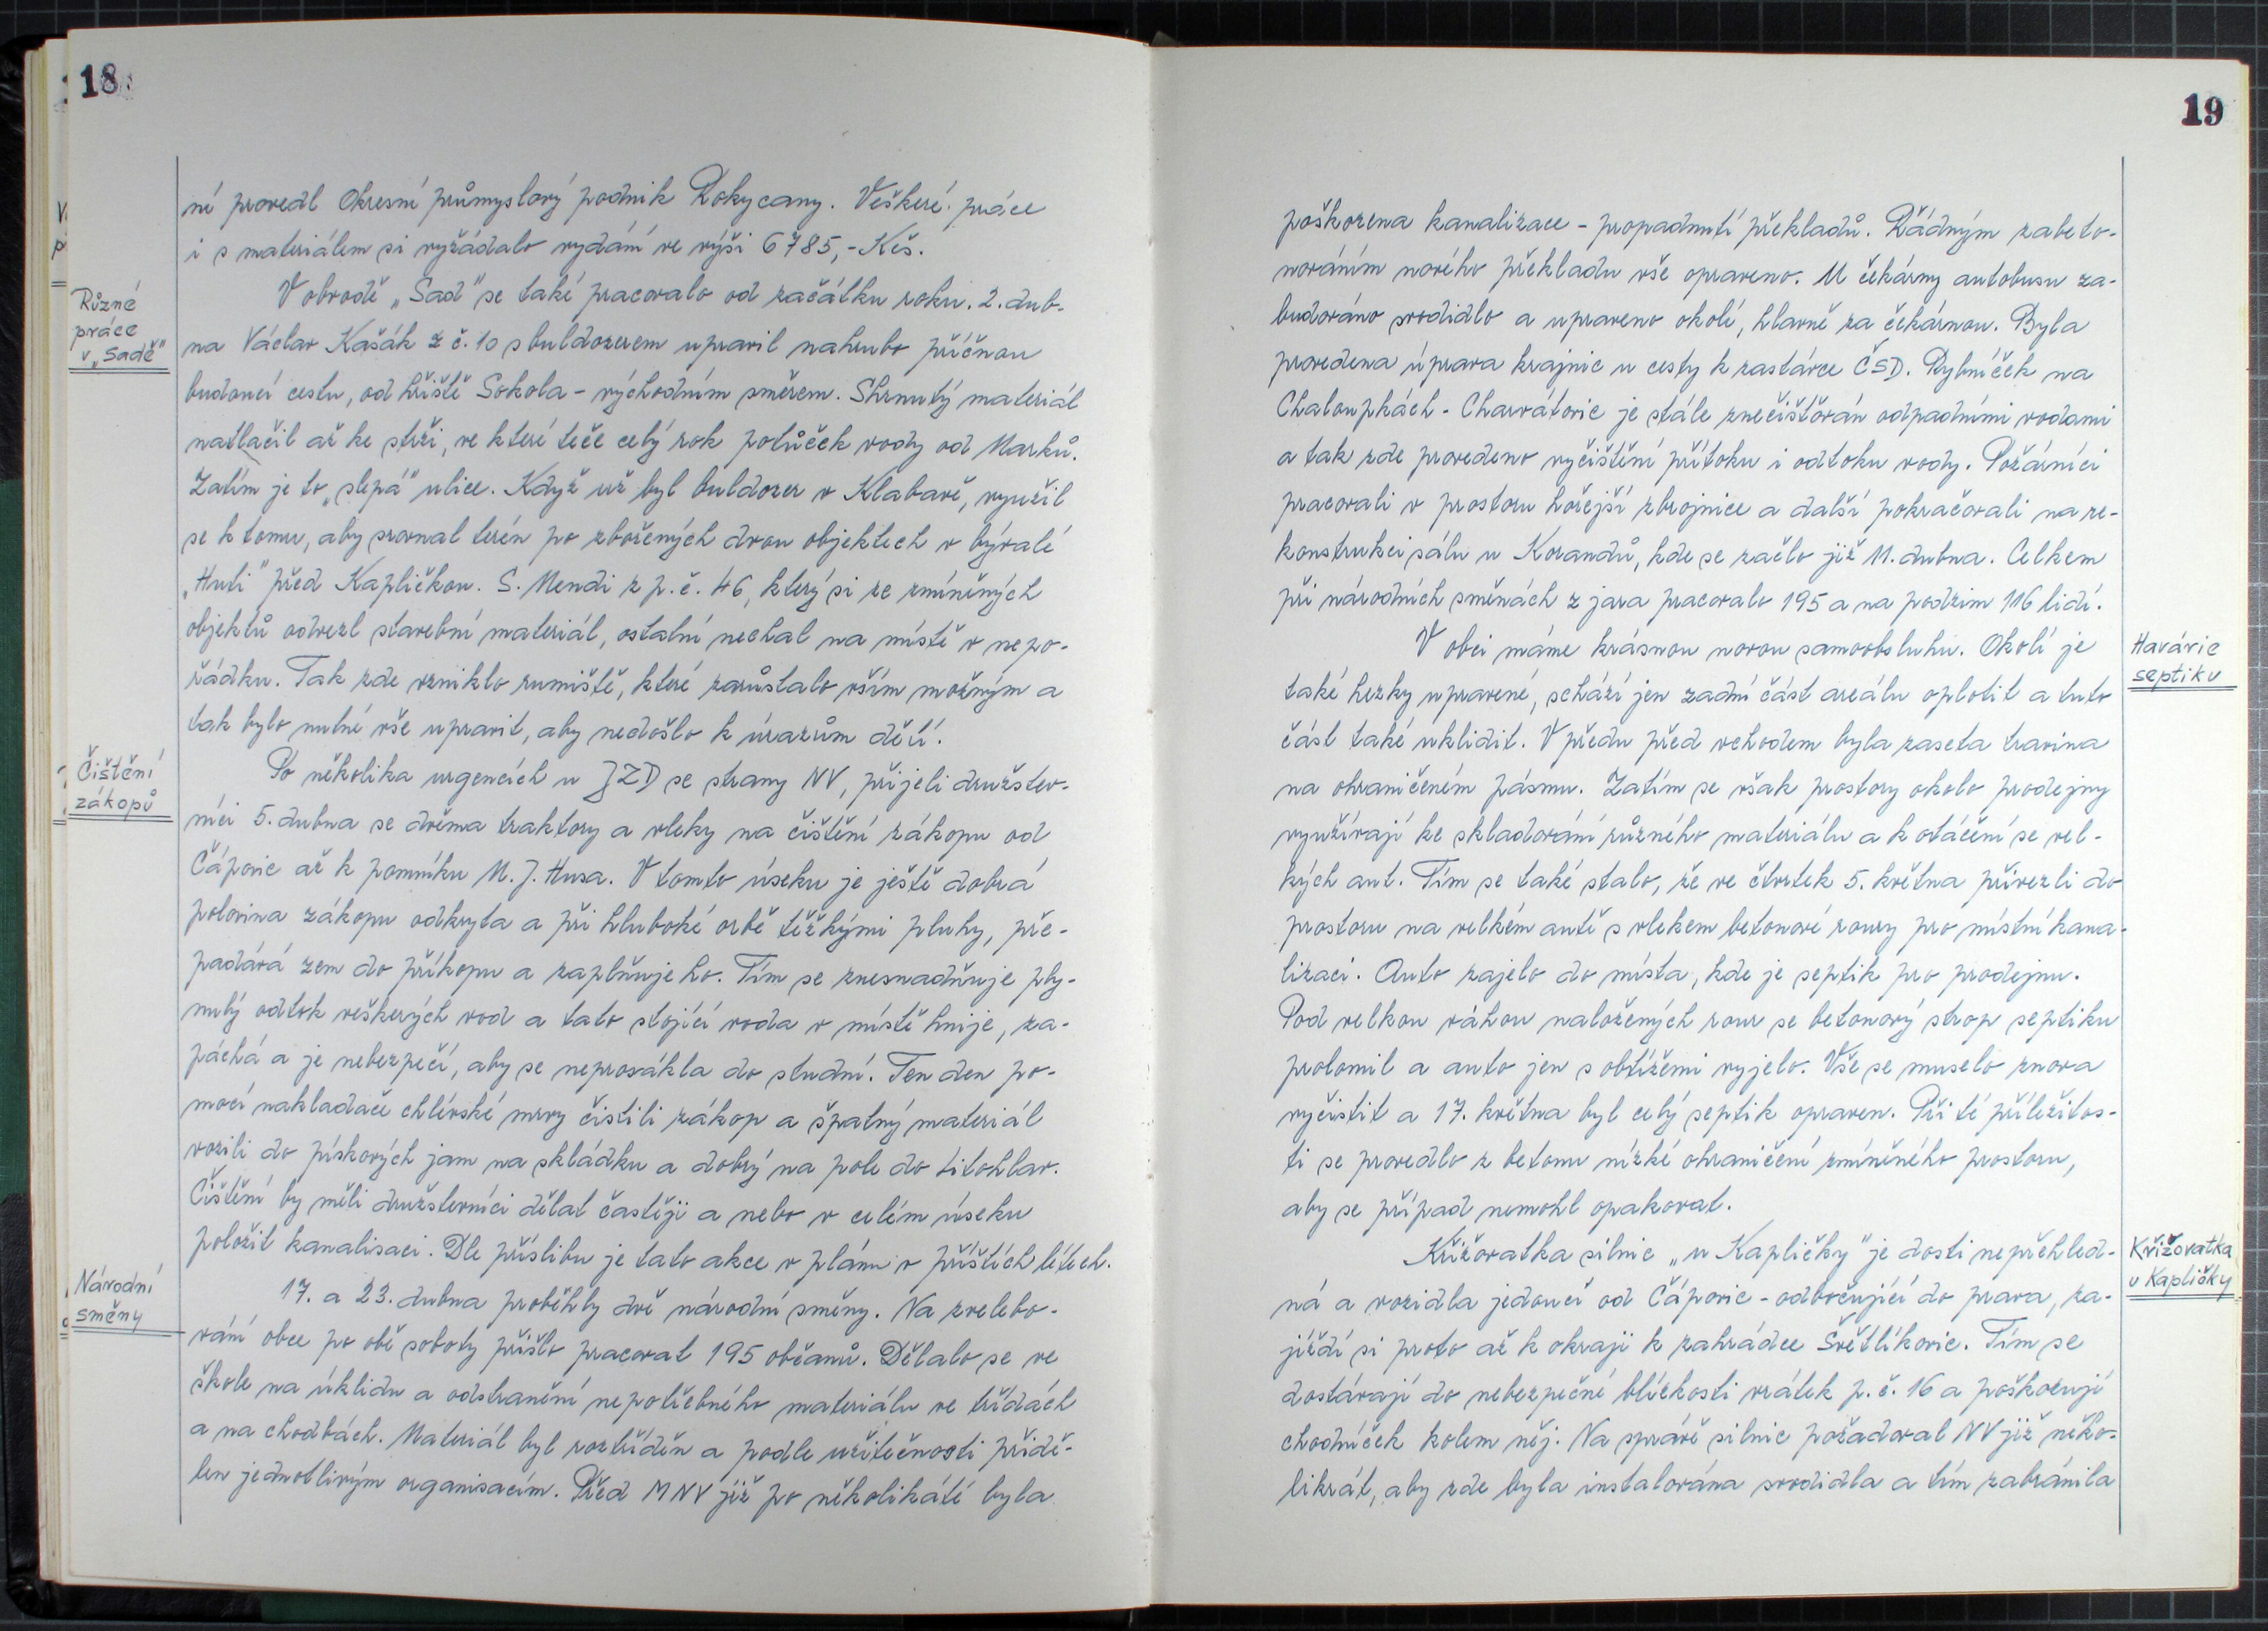 18
ní provedl Okresní průmyslový podnik Rokycany. Veškeré práce
i s materiálem si vyžádalo vydání ve výši 6785,- Kčs.
Různé
práce
v „Sadě"
V obvodě „Sad" se také pracovalo od začátku roku. 2. dub-
na Václav Kašák z č. 10 s buldozerem upravil nahrubo příčnou
budoucí cestu, od hřiště Sokola - východním směrem. Shrnutý materiál
natlačil až ke strži, ve které teče celý rok potůček vody od Marků.
Zatím je to „slepá" ulice. Když už byl buldozer v Klabavě, využil
se k tomu, aby srovnal terén po zbořených dvou objektech v bývalé
„Huti" před Kapličkou. S. Mendi z p. č. 46, který si ze zmíněných
objektů odvezl stavební materiál, ostatní nechal na místě v nepo-
řádku. Tak zde vzniklo rumiště, které zarůstalo vším možným a
tak bylo nutné vše upravit, aby nedošlo k úrazům dětí.
Čištění
zákopů
Po několika urgencích u JZD se strany NV, přijeli družstev-
níci 5. dubna se dvěma traktory a vleky na čištění zákopu od
Čápovic až k pomníku M. J. Husa. V tomto úseku je ještě dobrá
polovina zákopu odkryta a při hluboké orbě těžkými pluhy, pře-
padává zem do příkopu a zaplňuje ho. Tím se znesnadňuje ply-
nulý odtok veškerých vod a tato stojící voda v místě hnije, za-
páchá a je nebezpečí, aby se neprosákla do studní. Ten den po-
mocí nakladače chlévské mrvy čistili zákop a špatný materiál
vozili do pískových jam na skládku a dobrý na pole do Litohlav.
Čištění by měli družstevníci dělat častěji a nebo v celém úseku
položit kanalisaci. Dle příslibu je tato akce v plánu v příštích létech.
Národní
směny
17. a 23. dubna proběhly dvě národní směny. Na zvelebo-
vání obce po obě soboty přišlo pracovat 195 občanů. Dělalo se ve
škole na úklidu a odstranění nepotřebného materiálu ve třídách
a na chodbách. Materiál byl roztříděn a podle užitečnosti přidě-
len jednotlivým organisacím. Před MNV již po několikáté byla
19
poškozena kanalizace - propadnutí překladů. Řádným zabeto-
nováním nového překladu vše opraveno. U čekárny autobusu za-
budováno svodidlo a upraveno okolí, hlavně za čekárnou. Byla
provedena úprava krajnic u cesty k zastávce ČSD. Rybníček na
Chaloupkách - Charvátovic je stále znečišťován odpadními vodami
a tak zde provedeno vyčištění přítoku i odtoku vody. Požárníci
pracovali v prostoru hořejší zbrojnice a další pokračovali na re-
konstrukci sálu u Korandů, kde se začlo již 11. dubna. Celkem
při národních směnách z jara pracovalo 195 a na podzim 116 lidí.
Havárie
septiku
V obci máme krásnou novou samoobsluhu. Okolí je
také hezky upravené, schází jen zadní část areálu oplotit a tuto
část také uklidit. V předu před vchodem byla zaseta travina
na ohraničeném pásmu. Zatím se však prostory okolo prodejny
využívají ke skladování různého materiálu a k otáčení se vel-
kých aut. Tím se také stalo, že ve čtvrtek 5. května přivezli do
prostoru na velkém autě s vlekem betonové roury pro místní kana-
lizaci. Auto zajelo do místa, kde je septik pro prodejnu.
Pod velkou váhou naložených rour se betonový strop septiku
prolomil a auto jen s obtížemi vyjelo. Vše se muselo znova
vyčistit a 17. května byl celý septik opraven. Při té příležitos-
ti se provedlo z betonu nízké ohraničení zmíněného prostoru,
aby se případ nemohl opakovat.
Křižovatka
u Kapličky
Křižovatka silnic „u Kapličky" je dosti nepřehled-
ná a vozidla jedoucí od Čápovic - odbočující do prava, za-
jíždí si proto až k okraji k zahrádce Světlíkovic. Tím se
dostávají do nebezpečné blízkosti vrátek p. č. 16 a poškozují
chodníček kolem něj. Na správě silnic požadoval NV již něko-
likrát, aby zde byla instalována svodidla a tím zabránila